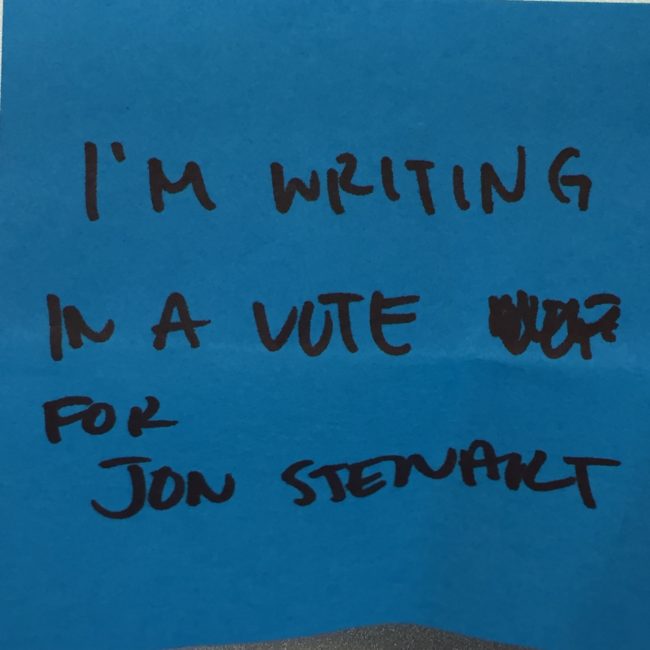 I'M WRITING
IN A VOTE
FOR
JON STEWART